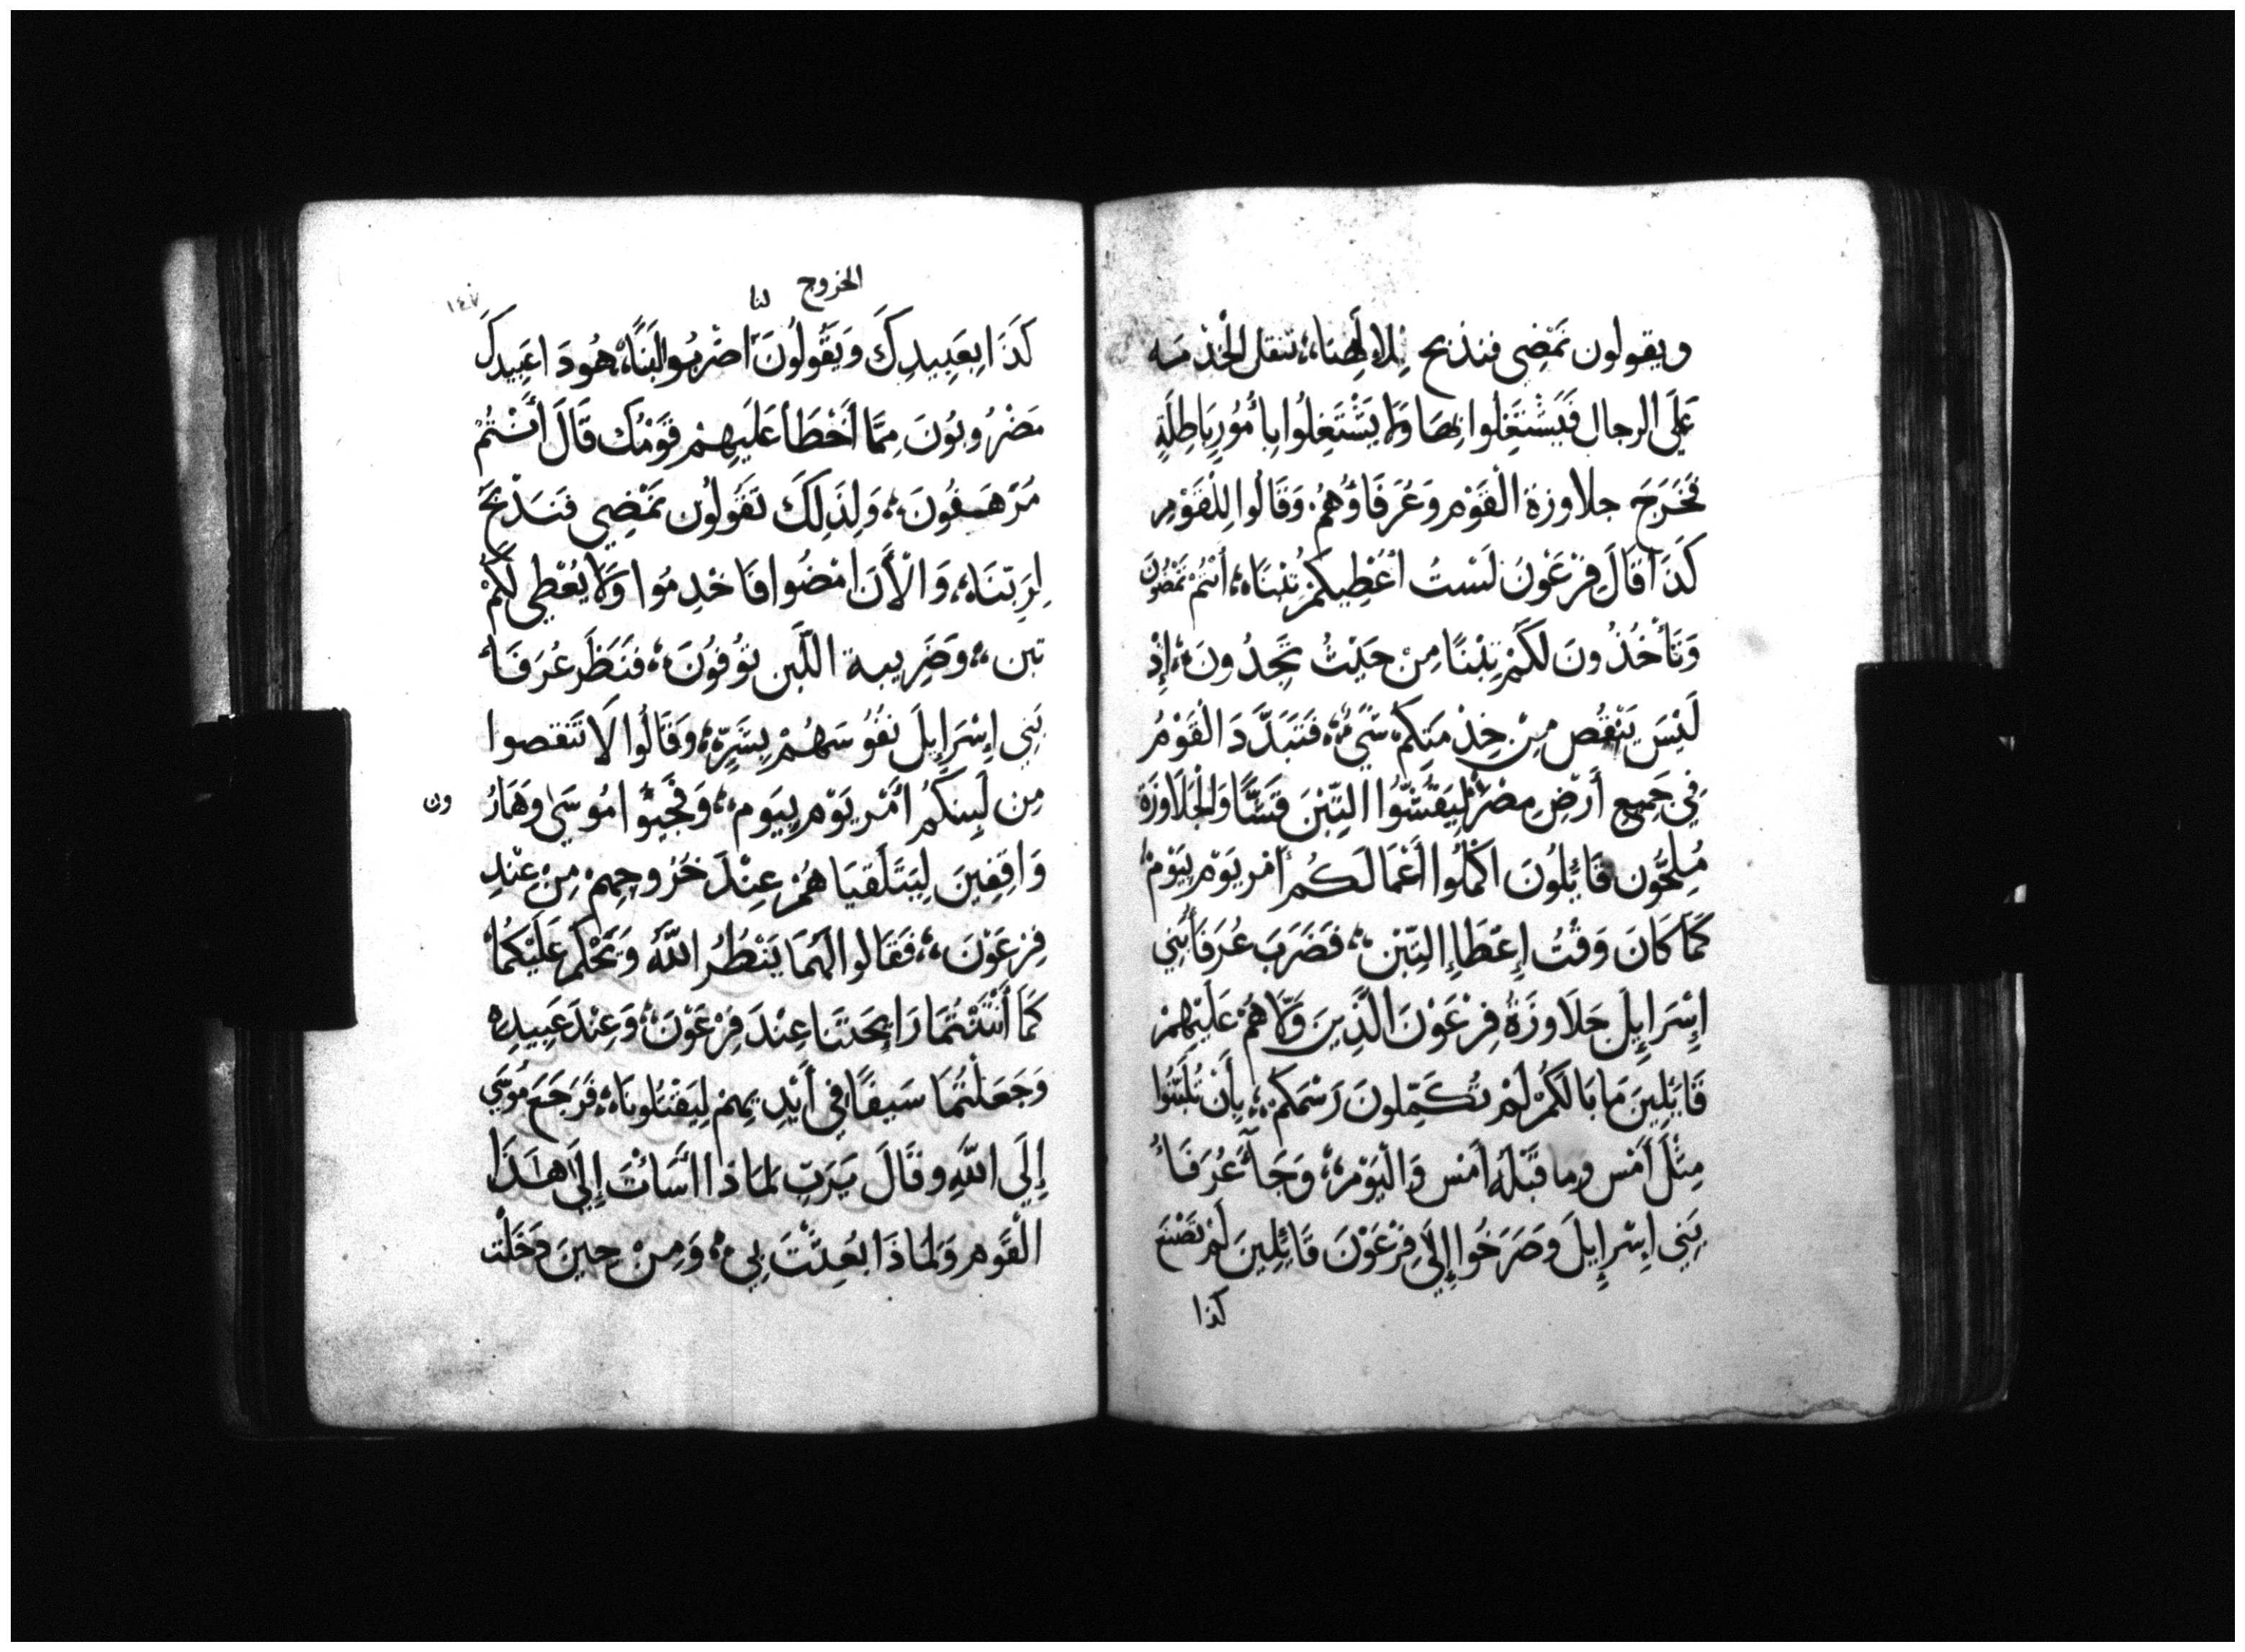 ويقولون نَمْضِي فنذبح لِلإلَهِنَا، تثقل الخذمه
عَلَي الرجال فَيَشْتَغِلُوا بِهَا وَلَا يَشْتَغِلُوا بِأُمُورٍ بَاطِلَةٍ
فَخَرَجَ جلاوزة الْقَوْمِ وَعُرَفَاؤُهُمْ وَقَالُوا لِلْقَوْمِ
كَذَا قَالَ فِرْعَوْنَ لَسْتُ أُعْطِيكُمْ تِبْنَاهُ، أَنْتُمْ تَمْضُونَ
وَتَأْخُذُونَ لَكُمْ تِبْنًا مِنْ حَيْثُ تَجِدُونَ، إِذْ
لَيْسَ يَنْقُص مِنْ خِذْمَتِكُمْ شَيْءٌ، فَتَبَدَّدَ الْقَوْمُ
فِي جَمِيعِ أَرْضِ مِصْرَ لِيَقُشُّوا التِّبْنَ قَشًّا وَالْجَلَاوِزَةُ
مُلِحُّون قَائِلُونَ اكْمُلُوا أَعْمَالَكُمْ أَمْر يَوْمٍ بِيَوْمٍ
كَمَا كَانَ وَقْتُ إِعْطَاءِ التِّبْنِ، فَضَرَبَ عُرَفَأُ بَنِي
إِسْرَايِلَ جَلَاوِزَةُ فِرْعَوْنَ الَّذِينَ وَلَّاهُمْ عَلَيْهِمْ
قَائِلِينَ مَا بَالَكُمْ لَمْ تُكَمِّلُونَ رَسْمَكُمْ، بِأَنْ تُلَبِّنُوا
مِثْلَ أَمْسِ وما قَبْلَهُ أَمْسِ وَالْيَوْمِ، وَجَآءَ عُرَفَاءُ
بَنِي إِسْرَايِلَ وَصَرَخُوا إِلَي فِرْعَوْنَ قَائِلِينَ لَمْ تَصْنَعْ
كذا
الخروج
١٤٧
لنا
كَذَا بِعَبِيدِكَ وَيَقُولُونَ اضْرِبُوا لَبَنًا، هُودَا عَبِيدكَ
مَضْرُوبُونَ مِمَّا أَخْطَأ عَلَيهِمْ قَوْمُكَ قَالَ أَنْتُمْ
مُرَهَفُونَ، وَلِذَلِكَ تَقُولُون نَمْضِي فَنَذْبَحُ
لِرَبِّنَاهُ، وَالْأَنَ امْضُوا فَاخْدِمُوا وَلَا يُعْطِي لَكُمْ
تبن، وَضَرِيبة اللَّبِن تُوفُونَ، فَنَظَرَ عُرَفَأ
بَنِي إِسْرَايِلَ نفُوسَهُمْ بِشَرٍّ، وَقَالُوا لَا تَنقصوا
مِن لَبِنِكُمْ أَمْر يَوْمٍ بِيَومٍ، وَفَجَئُوا مُوسَي وهَارُ
ون
وَاقِفِينَ لِيَتَلَقَيَاهُمْ عِنْدَ خُرُوجِهِمْ مِنْ عِنْدِ
فِرْعَوْنَ، فَقَالُوا لَهُمَا يَنْظُرُ اللَّهُ وَيَحْكُمُ عَلَيْكُمَا
كَمَا أَنْتَنْتُمَا رَايِحَتَنَا عِنْدَ فِرْعَوْنَ، وَعِنْدَ عَبِيدِهِ
وَجَعَلْتُمَا سَيفًا فِي أَيْدِيهِمْ لِيَقْتُلُونَاهُ، فَرَجَعَ مُوسَي
إِلَي اللَّهِ وقَالَ يَرَبِّ لِمَاذَا اسَّائْتَ إِلَي هَذَا
الْقَوْمِ وَلِمَاذَا بُعِثْتَ بِي، وَمِنْ حِينَ دَخَلْت